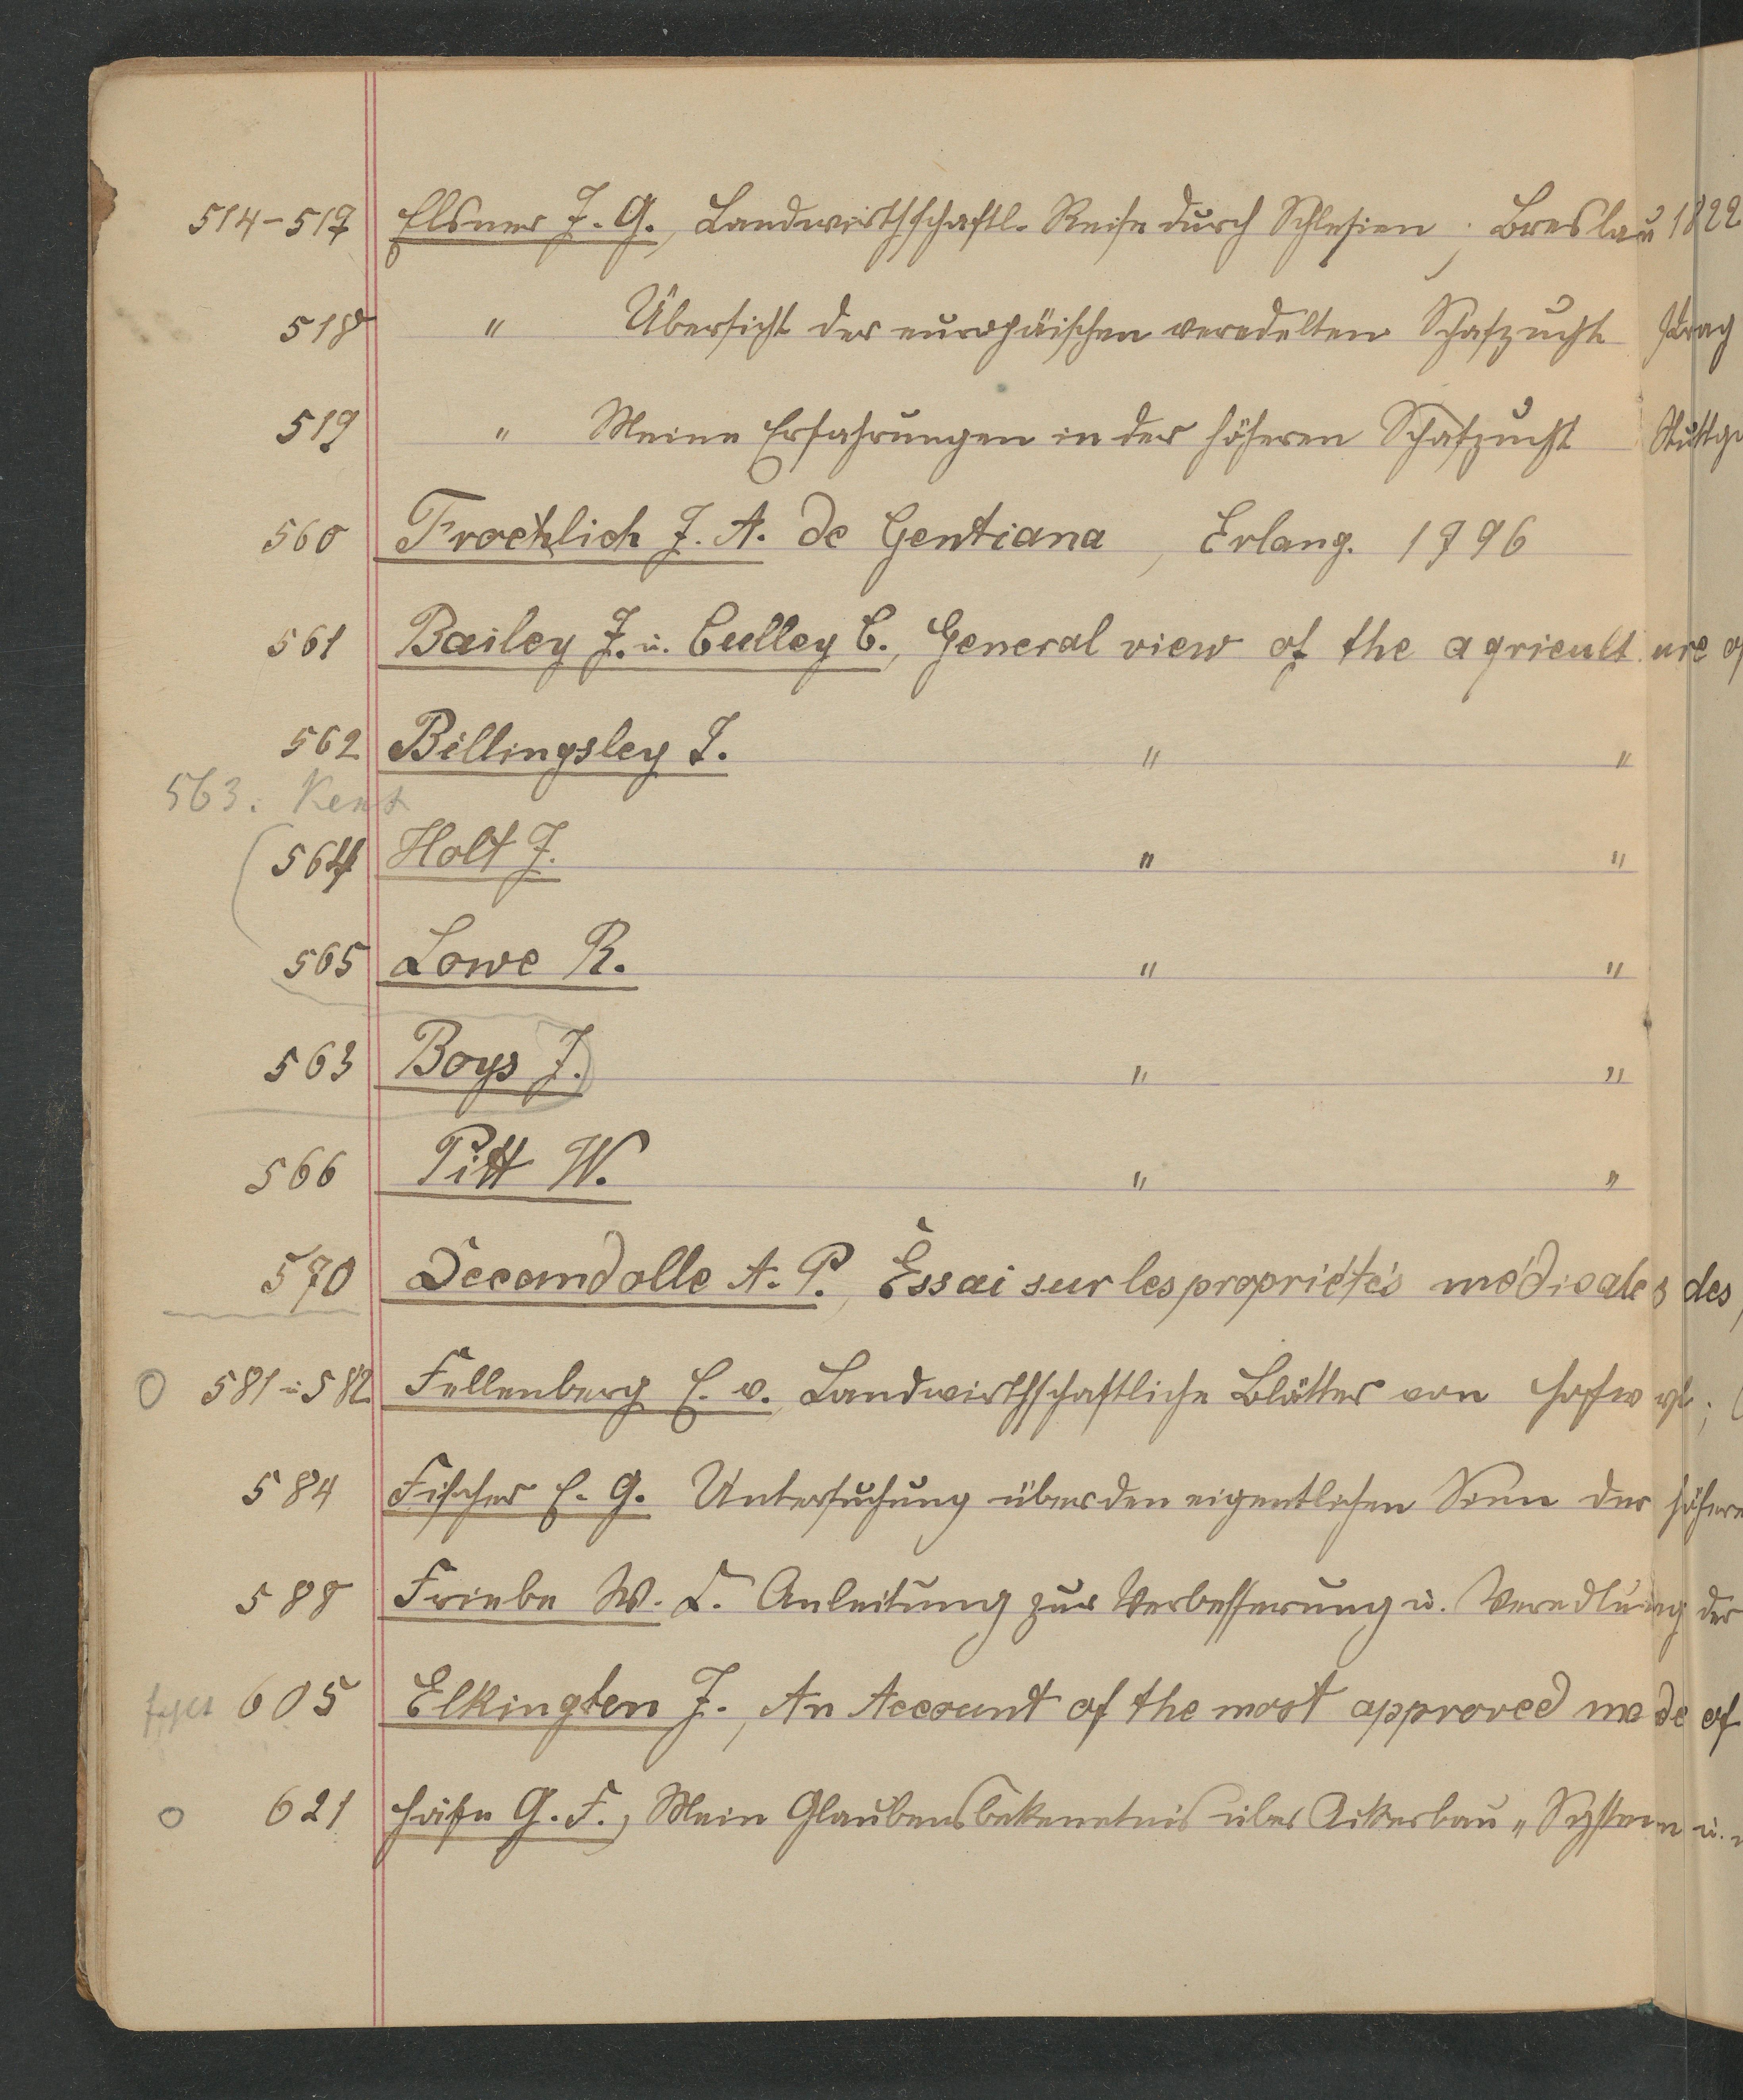 514-517 Elsner J. G., Landwirthschaftl. Reise durch Schlesien ; Breslau 1822
518 " Übersicht der europäischen veredelten Schafzucht Prag
519 " Meine Erfahrungen in der höheren Schafzucht Stuttg
560 Froehlich J. A. de Gentiana, Erlang. 1796
561 Bailey J. u. Culley C., General view of the agriculture of
562 Billingsley J. " "
563. Kent
564 Holt J. " "
565 Lowe R. " "
563 Boys J. " "
566 Pitt W. " "
570 Decandolle A. P., Essai sur les propriétés médicales des
581 u 582 Fellenberg E. v. Landwirthschaftliche Blätter von Hofwyl;
584 Fischer E. G. Untersuchung über den eigentlichen Sinn der höhere
588 Friebe W. C. Anleitung zur Verbesserung u. Veredlung der
605 Elkington J., An Account of the most approved mode of
621 G. F., Mein Glaubensbekenetnis über Ackerbau „ System u.